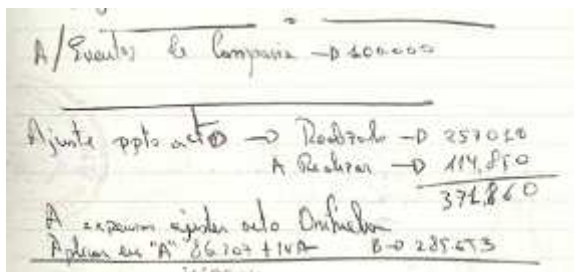 A/ Eventos de Compañia → 100.000
Ajuste ppto acto → Realizado → 257010
A Realizar → 114.850
371.860
A expensas ajustes acto
Aplicar en "A" 86.207 + IVA B → 285.653